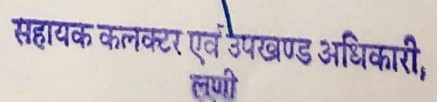 सहायक कलक्टर एवं उपखण्ड अधिकारी,
लूणी